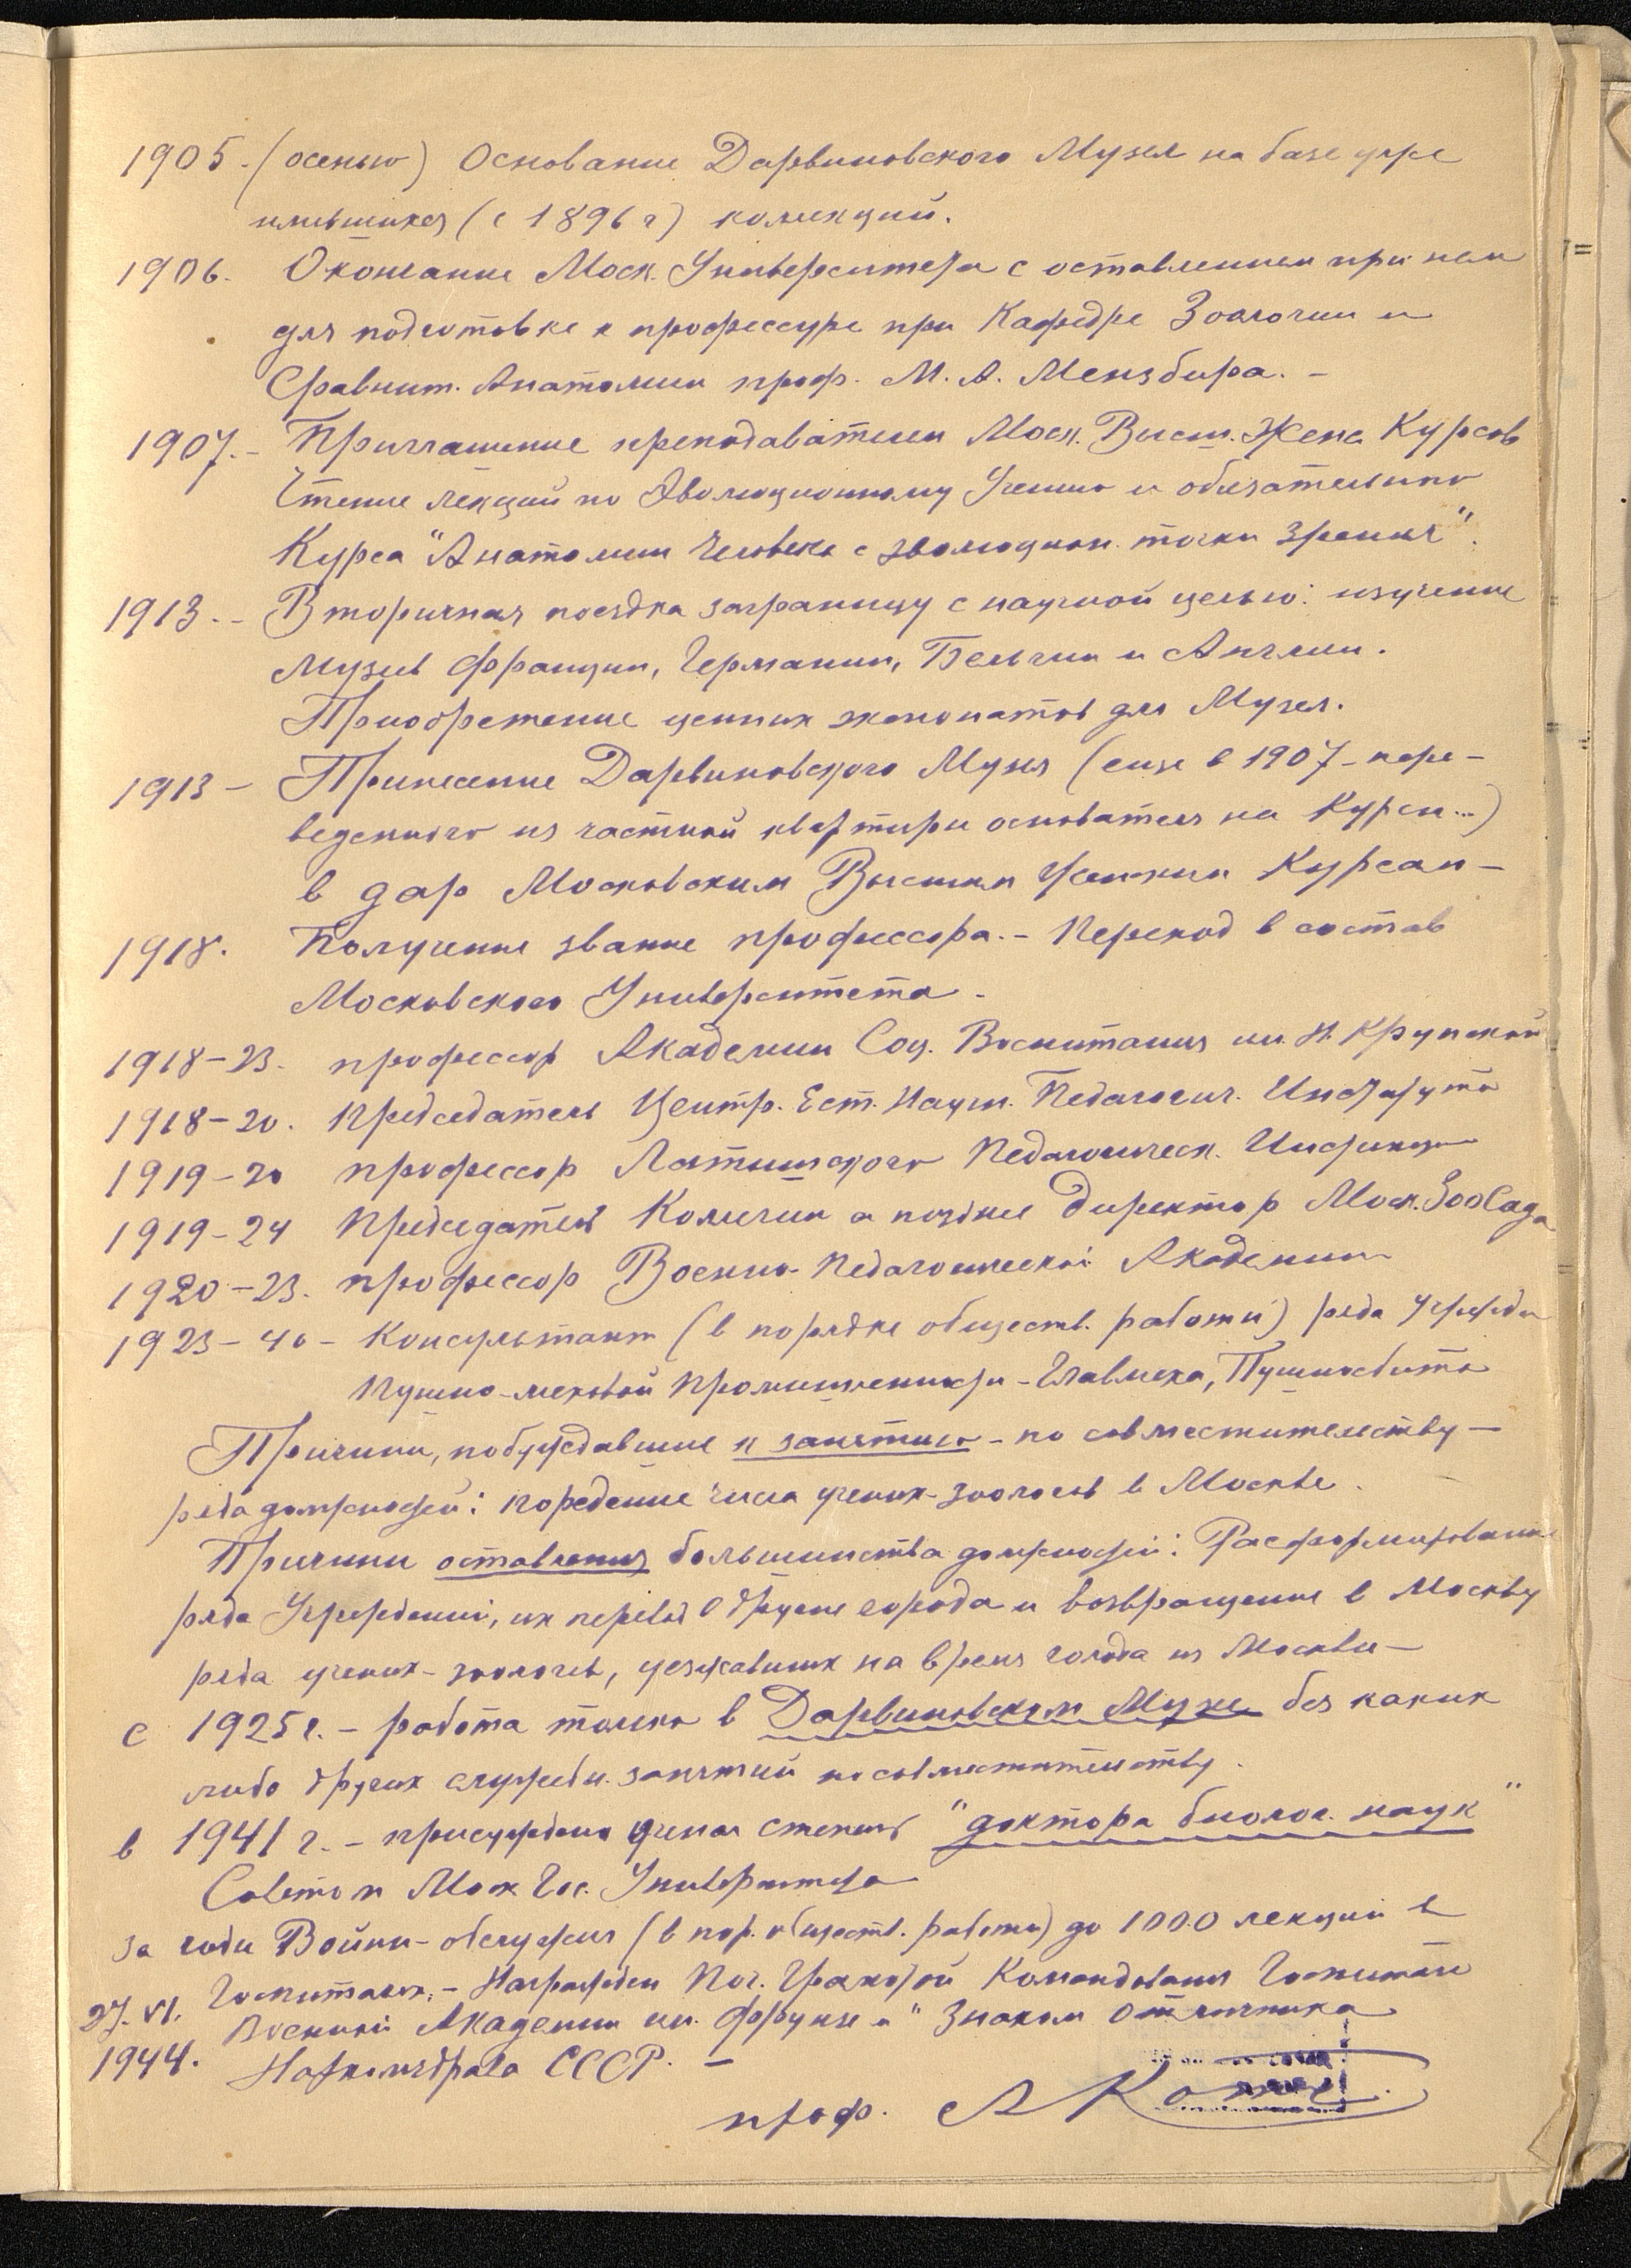 1905 - (осенью) Основание Дарвиновского Музея на базе уже
имевшихся (с 1896 г) коллекций.
1906. Окончание Моск. Университета с оставлением при нем
для подготовке к профессуре при Кафедре Зоологии и
Сравнит. Анатомии проф. М. А. Мензбира. –
1907. – Приглашение преподавателем Моск. Высш. Женс Курсов
Чтение лекций по Эволюционному Учению и обязательного
Курса "Анатомии Человека с эволюцион. точки зрения".
1913. – Вторичная поездка заграницу с научной целью: изучение
Музеев Франции, Германии, Бельгии и Англии.
Приобретение ценных экспонатов для Музея.
1913 – Принесение Дарвиновского Музея (еще в 1907 – пере-
веденного из частной квартиры основателя на Курсы...)
в дар Московским Высшим Женским Курсам –
1918. Получение звание профессора. – Переход в состав
Московского Университета –
1918–23. профессор Академии Соц. Воспитания им. Н. Крупской
1918–20. Председатель Центр. Ест. Научн. Педагогич. Института
1919–20 профессор Латышского Педагогическ. Института
1919–24 Председатель Коллегии а позднее Директор Моск. ЗооСада
1920–23. профессор Военно-Педагогической Академии
1923–40 – Консультант (в порядке обществ. работы) ряда Учрежд
Пушно-меховой Промышленности – Главмеха, Пушносбыта
Причины, побуждавшие к занятию – по совместительству –
ряда должностей: поредение числа ученых-зоологов в Москве.
Причины оставления большинства должностей: Расформирование
ряда Учреждений, их перевод в другие города и возвращение в Москву
ряда ученых-зоологов, уезжавших на время голода из Москвы –
с 1925 г. – работа только в Дарвиновском Музее без каких
либо других служебн. занятий по совместительству.
в 1941 г. – присуждена ученая степень "доктора биолог. наук"
Советом Моск Гос. Университета
за годы Войны – обслужил (в пор. обществ. работы) до 1000 лекций в
Госпиталях. – Награжден Поч. Грамотой Командования Госпиталя
27. VI. Военной Академии им. Фрунзе и "Знаком Отличника
1944. Наркомздрава СССР. –
проф. А Котс